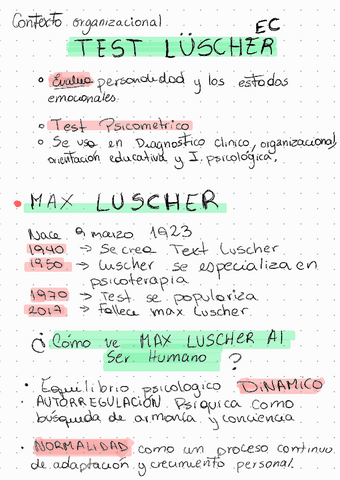 Contexto organizacional
EC
TEST LÜSCHER
• Evalua personalidad y los estados
emocionales.
• Test Psicometrico
• Se usa en Diagnostico clinico, organizacional,
orientación educativa y I. psicológica.
• MAX LUSCHER
Nace 9 marzo 1923
1940 → Se crea Text Luscher
1950 → Luscher se especializa en
psicoterapia
1970 → Test se populariza
2017 → Fallece max Luscher.
¿ Cómo ve MAX LUSCHER Al
Ser Humano ?
• Equilibrio psicologico DINAMICO
• AUTORREGULACIÓN Psiquica como
búsqueda de armonía y conciencia.
• NORMALIDAD como un proceso continuo
de adaptación y crecimiento personal.